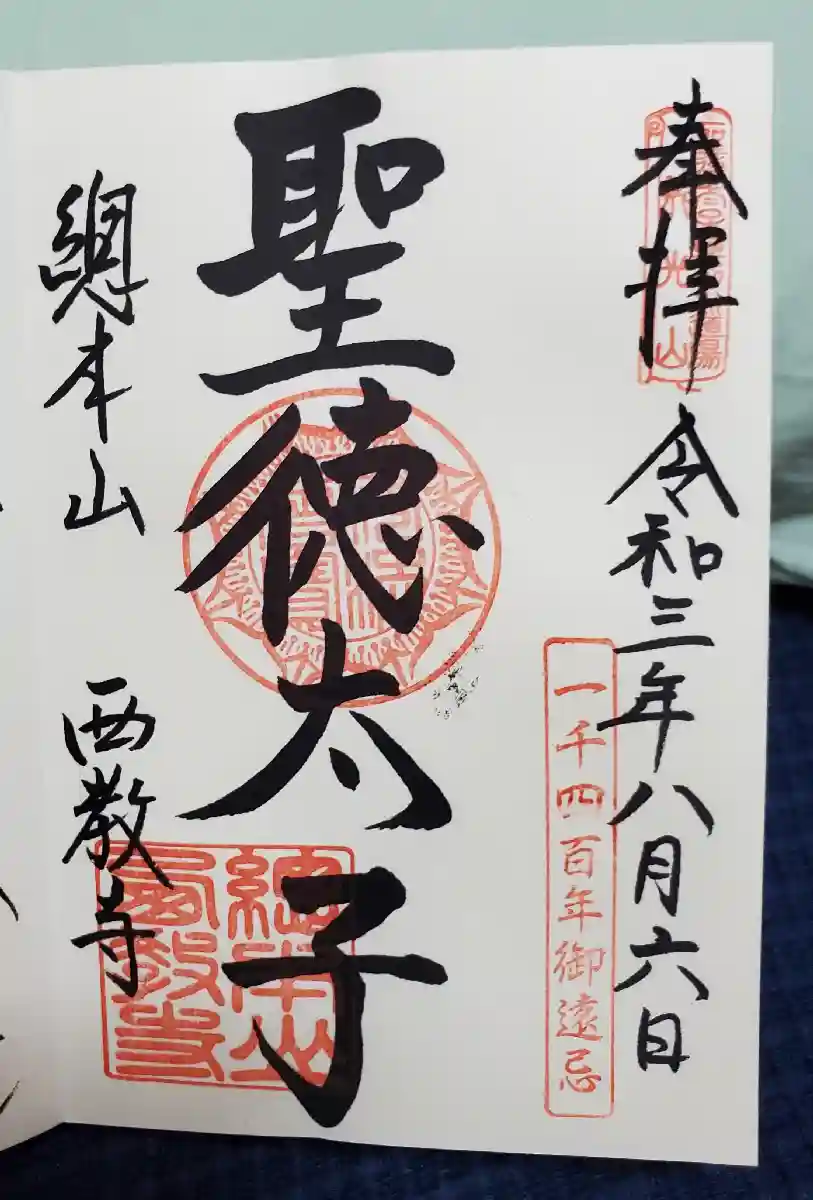 奉拝 令和三年八月六日
一千四百年御遠忌
聖徳太子
總本山 西教寺
總本山
西教寺